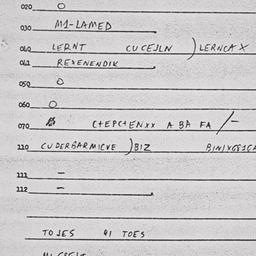 020 O
030 M1-LAMED
040 LERNT CUCEJLN ) LERNCA X
041 REXENENDIK
050 O
060 O
070 C+EPC+ENXX A BA FA /-
110 CUDERBARMICVE ) BIZ
111 -
112 -
TOJES 41 TOES